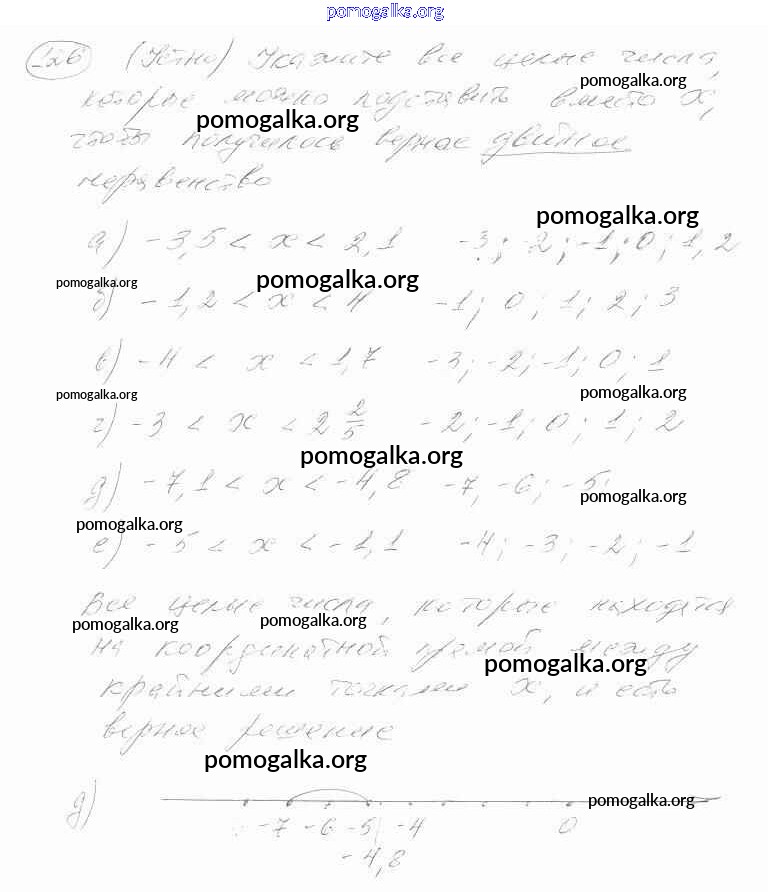 pomogalka.org
126 (Устно) Укажите все целые числа,
pomogalka.org
которые можно подставить вместо x,
pomogalka.org
чтобы получилось верное двойное
неравенство
pomogalka.org
а) -3,5 < x < 2,1 -3; -2; -1; 0; 1, 2
pomogalka.org pomogalka.org
б) -1,2 < x < 4 -1; 0; 1; 2; 3
в) -4 < x < 1,7 -3; -2; -1; 0; 1
pomogalka.org pomogalka.org
г) -3 < x < 2 2/5 -2; -1; 0; 1; 2
pomogalka.org
д) -7,1 < x < -4,8 -7, -6; -5;
pomogalka.org
pomogalka.org
е) -5 < x < -1,1 -4; -3; -2; -1
Все целые числа, которые находятся
pomogalka.org pomogalka.org
на координатной прямой между
pomogalka.org
крайними точками x, и есть
верное решение
pomogalka.org
д) pomogalka.org
-7 -6 -5 -4 0
-4,8